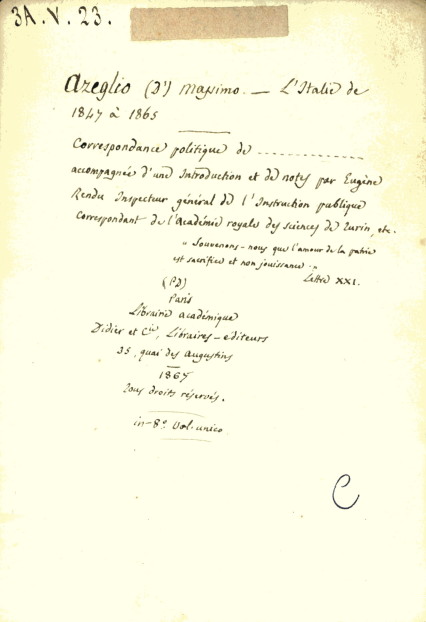 3A.V.23.
Azeglio (D') Massimo. — L'Italie de
1847 à 1865
Correspondance politique de ...............
accompagnée d'une Introduction et de notes par Eugène
Rendu Inspecteur général de l'Instruction publique
Correspondant de l'Académie royale des sciences de Turin, etc.
" Souvenons-nous que l'amour de la patrie
est sacrifice et non jouissance. "
Lettre XXI.
(PD)
Paris
Librairie académique
Didier et Cie, Libraires-editeurs
35, quai des Augustins
1867
Tous droits réservés.
in-8º Vol. unico
C